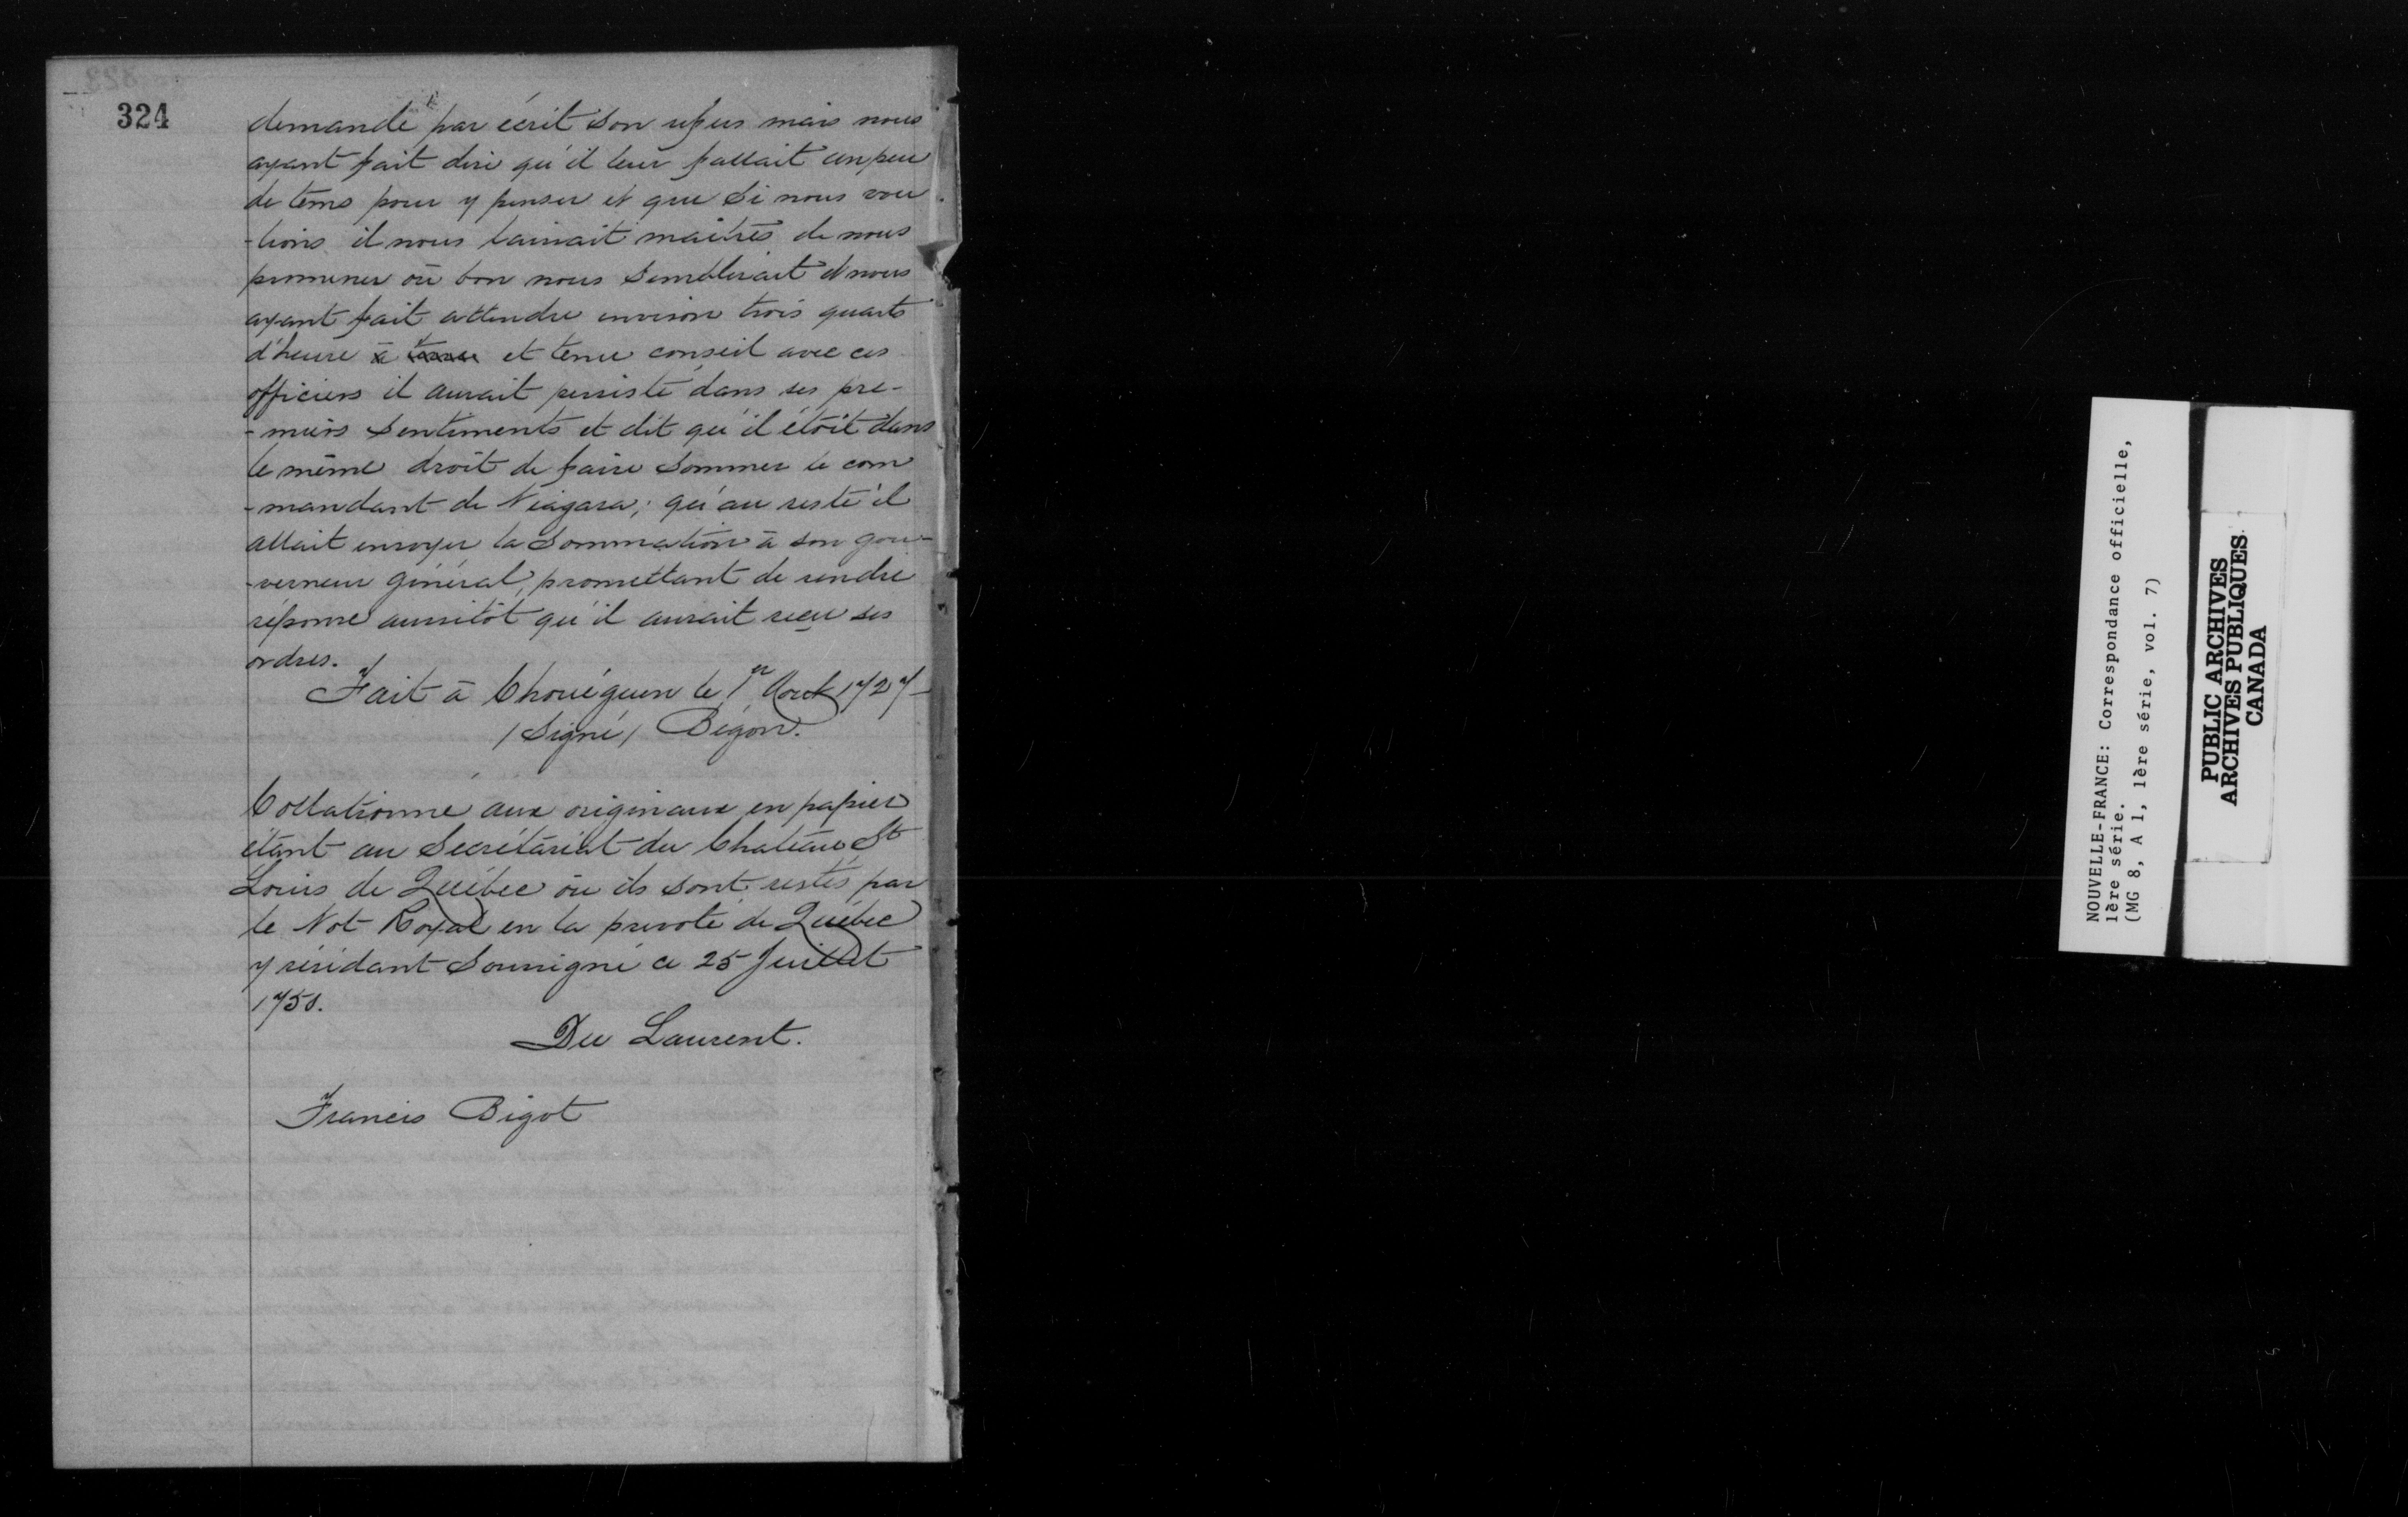 324
demandé par écrit son refus mais nous
ayant fait dire qu'il leur fallait un peu
de tems pour y penser et que si nous vou
-lions il nous laissait maîtres de nous
promener où bon nous semblerait et nous
ayant fait attendre environ trois quarts
d'heure à tenu et tenu conseil avec ces
officiers il aurait persisté dans ses pre-
-miers sentiments et dit qu'il étoit dans
le même droit de faire sommer le com
-mandant de Niagara; qu'au reste il
allait envoyer la sommation à son gou-
-verneur général, promettant de rendre
réponse aussitôt qu'il aurait reçu ses
ordres.
Fait à Chouéguen le 1er Aout 1727-
/Signé/ Bégon.
Collationné aux originaux en papier
étant au Secrétariat du Chateau St
Louis de Québec où ils sont restés par
le Not Royal en la prevoté de Québec
y résidant soussigné ce 25 Juillet
1750.
Du Laurent.
Francis Bigot
NOUVELLE-FRANCE: Correspondance officielle,
1ère série.
(MG 8, A 1, 1ère série, vol. 7)
PUBLIC ARCHIVES
ARCHIVES PUBLIQUES
CANADA